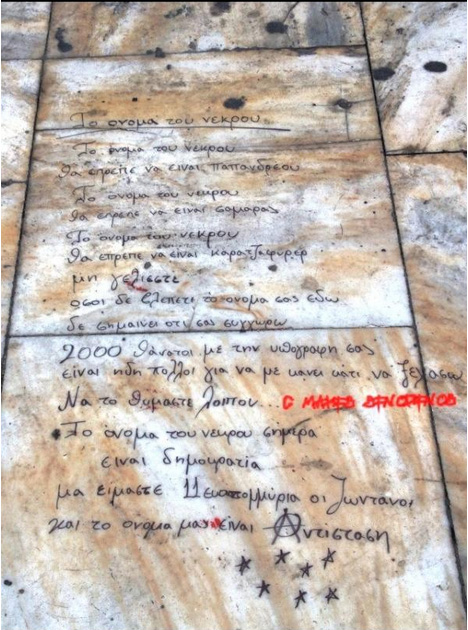 Το ονομα του νεκρου
Το ονομα του νεκρου
θα επρεπε να ειναι παπανδρεου
Το ονομα του νεκρου
θα επρεπε να ειναι σαμαρας
Το ονομα του νεκρου
θα επρεπε να ειναι καρατζαφυρερ
μη γελιεστε
οσοι δε βλεπετε το ονομα σας εδω
δε σημαινει οτι σας συγχωρω
2000 θανατοι με την υπογραφη σας
ειναι ηδη πολλοι για να με κανει κατι να ξεχασω
Να το θυμαστε λοιπον...
Το ονομα του νεκρου σημερα
ειναι δημοκρατια
μα ειμαστε 11 εκατομμυρια οι ζωντανοι
και το ονομα μας ειναι Αντισταση